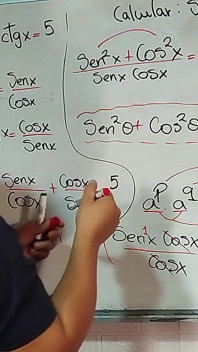 ctgx = 5
Senx
Cosx
x = Cosx
Senx
Senx + Cosx 5
Cosx
Calcular: S
Sen²x + Cos²x =
Senx Cosx
Sen²θ + Cos²θ
aᵖ a q
Senx Cosx
1
Cosx